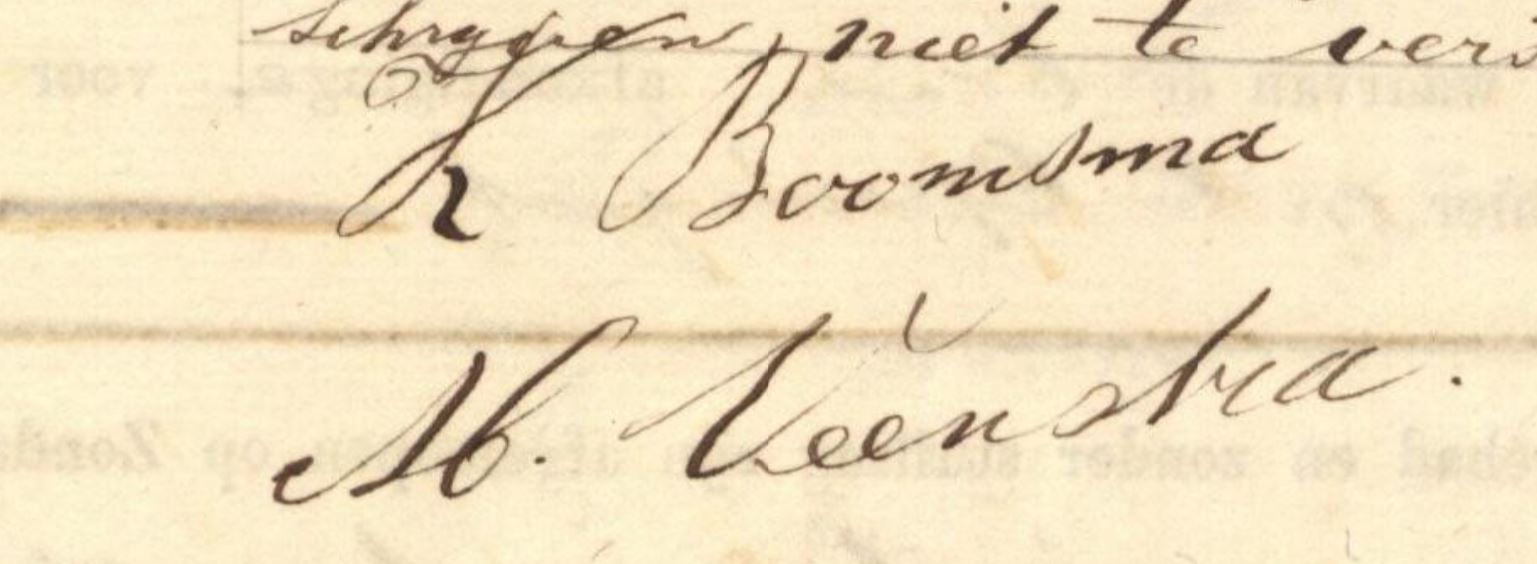 schryven, niet te vers
K Boomsma
M. Veenstra.